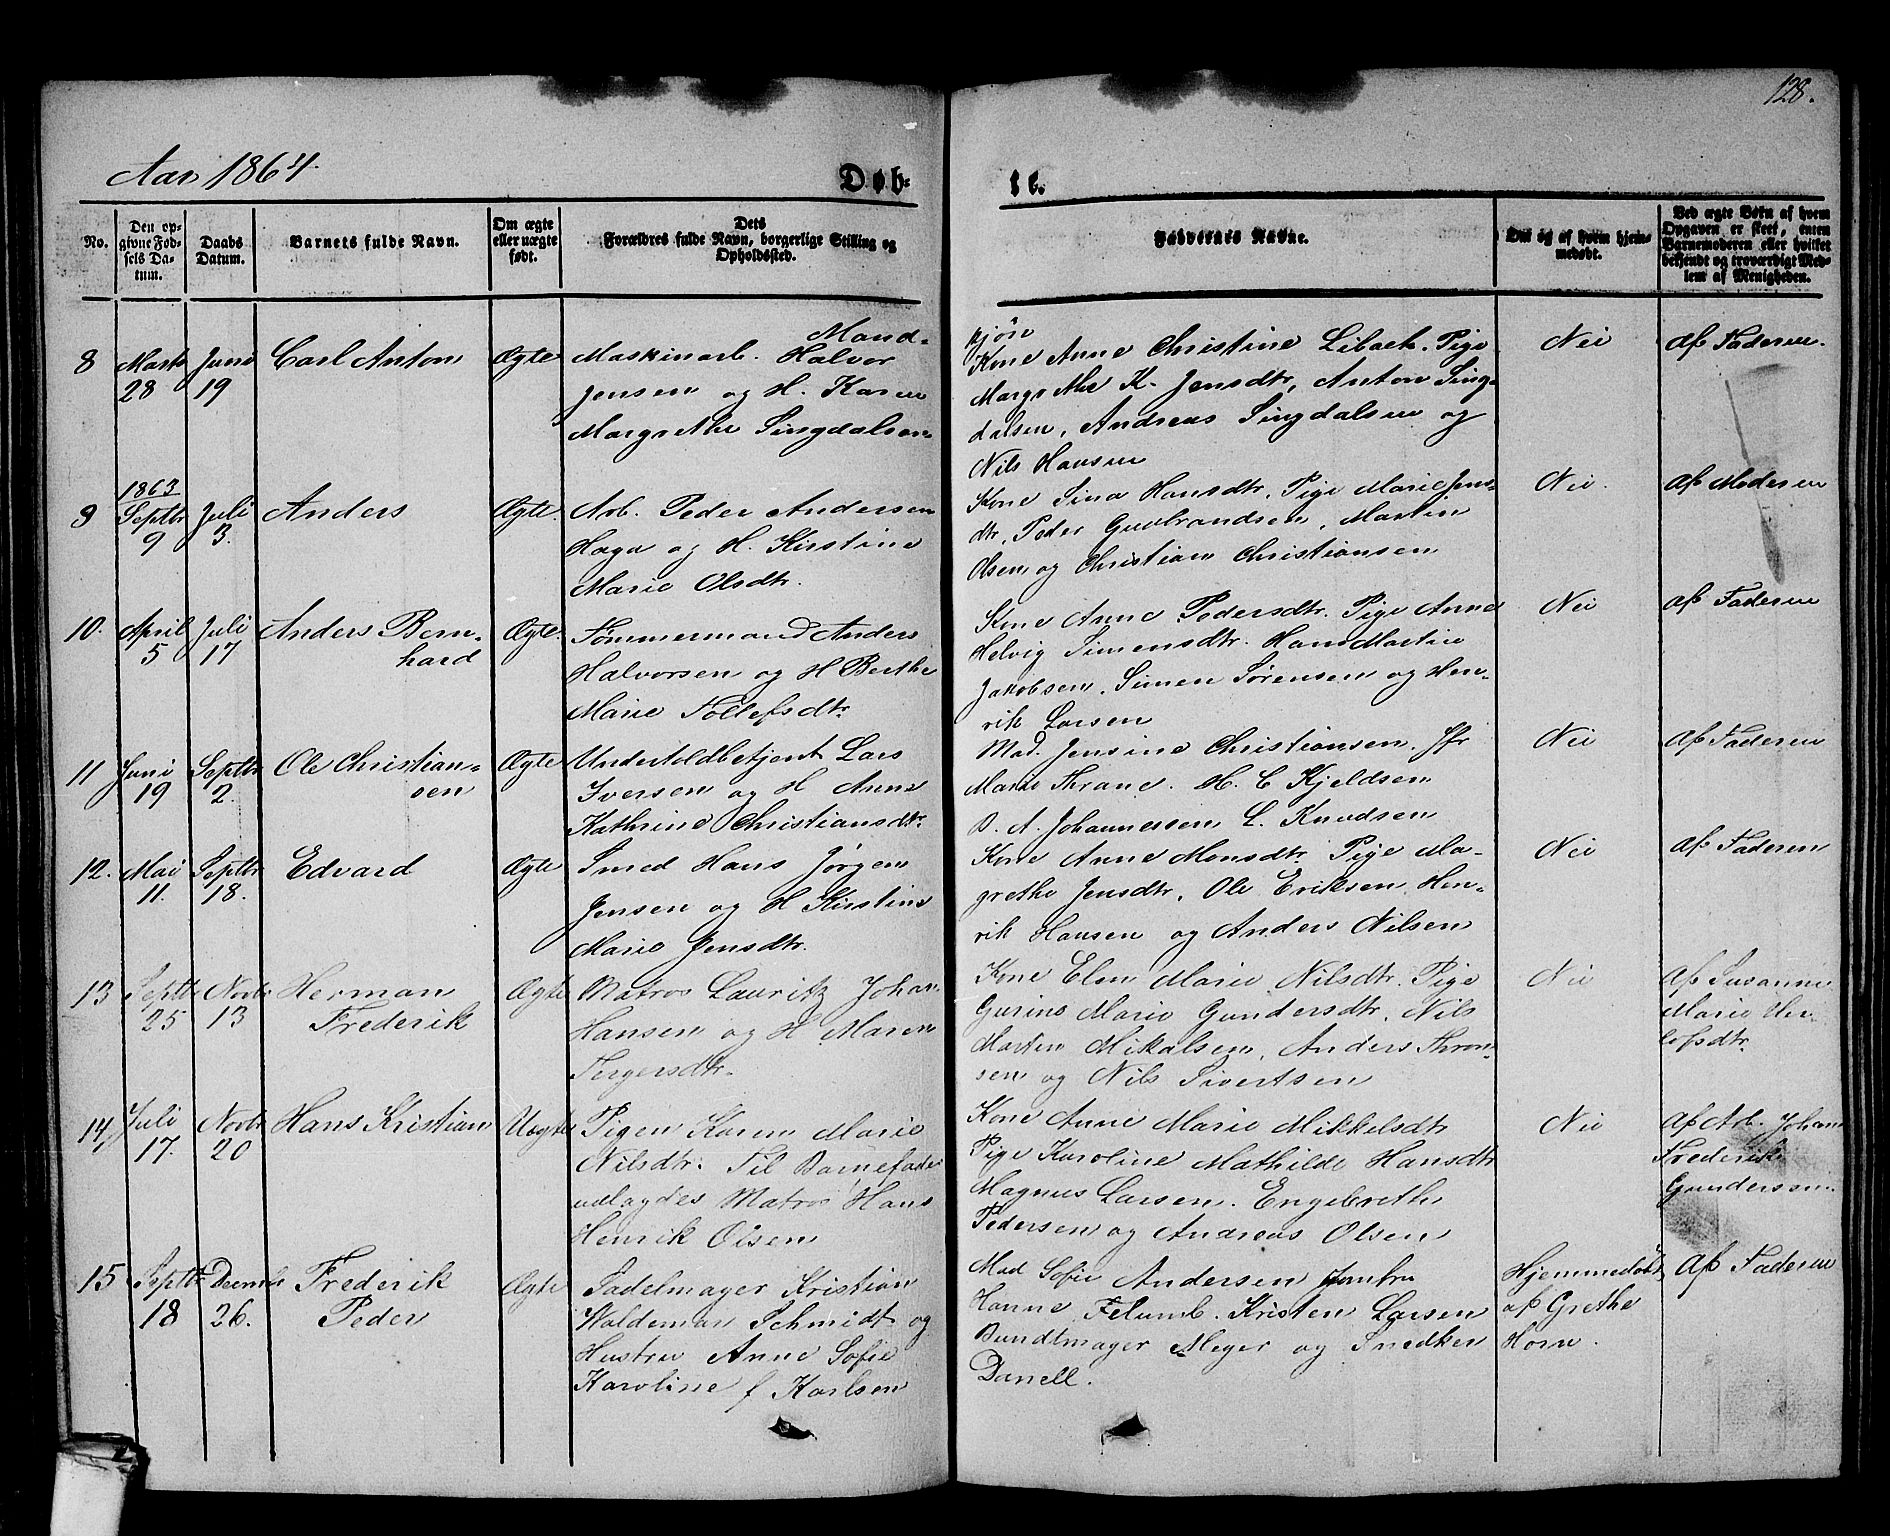 128.
Aar 1864.
Døb-
te.
No.
Den op-
givne Fød-
sels Da-
tum.
Daabs
Datum.
Barnets fulde Navn.
Om ægte
eller uægte
født.
Dets
Forældres fulde Navn, borgerlige Stilling og
Opholdssted.
Faddernes Navne.
Om og af hvem hjem-
medøbt.
Ved ægte Børn af hvem
Opgaven er skeet, enten
Barnemoderen eller hvilket
bekjendt og troværdigt Med-
lem af Menigheden.
8
Marts
28
Juni
19
Carl Anton
Ægte
Mand-
Maskinarb. Halvor
Jensen og H. Karen
Margrethe Singdalsen
Kone Anne Christine Liback. Pige
Margrethe K. Jensdtr, Anton Sing-
dalsen, Andreas Singdalsen og
Nils Hansen
Nei
Af Faderen.
9
1863
Septbr
9
Juli
3.
Anders
Ægte.
Arb. Peder Andersen
Haga og H. Kirstine
Marie Olsdtr.
Kone Sina Hansdtr. Pige Marie Jens-
dtr, Peder Gudbrandsen, Martin
Olsen og Christian Christiansen
Nei.
Af Moderen
10.
April
5
Juli
17
Anders Bern-
hard
Ægte.
Tømmermand Anders
Halvorsen og H Berthe
Marie Tollefsdtr.
Kone Anne Pedersdtr. Pige Anne
Helvig Simensdtr. Hans Martin
Jakobsen. Simen Sørensen og Hen-
rik Larsen
Nei
Af Faderen
11
Juni
19
Septbr
2.
Ole Christian-
sen
Ægte
Undertoldbetjent Lars
Iversen og H Anne
Kathrine Christiansdtr.
Mad. Jensine Christiansen. Jfr
Marie Thrane. H. C Kjeldsen
B. A. Johannessen L. Knudsen
Nei
Af Faderen
12.
Mai
11.
Septbr
18.
Edvard
Ægte
Smed Hans Jørgen
Jensen og H Kirstine
Marie Jensdtr.
Kone Anne Monsdtr. Pige Ma-
grethe Jensdtr, Ole Eriksen, Hen-
rik Hansen og Anders Nilsen
Nei
Af Faderen
13
Septbr
25
Novbr
13
Herman
Frederik
Ægte
Matros Lauritz Johan
Hansen og H Maren
Tergersdtr.
Kone Elen Marie Nilsdtr. Pige
Gurine Marie Gundersdtr. Nils
Morten Mikalsen, Anders Thron-
sen og Nils Sivertsen
Nei
Af Susanne
Marie Her-
lofsdtr.
14,
Juli
17.
Novbr
20
Hans Kristian
Uægte
Pigen Karen Marie
Nilsdtr. Til Barnefader
udlagdes Matros Hans
Henrik Olsen
Kone Anne Marie Mikkelsdtr
Pige Karoline Mathilde Hansdtr
Magnus Larsen. Engebreth
Pedersen og Andreas Olsen
Nei
Af Arb. Johan
Frederik
Gundersen.
15
Septbr
18
Decmb
26.
Frederik
Peder
Ægte
Sadelmager Kristian
Waldemar Schmidt og
Hustru Anne Sofie
Karoline f Karlsen
Mad Sofie Andersen Jomfru
Hanne Felumb. Kristen Larsen
Bundtmager Meyer og Snedker
Danell.
Hjemmedøbt
af Grethe
Horn.
Af Faderen